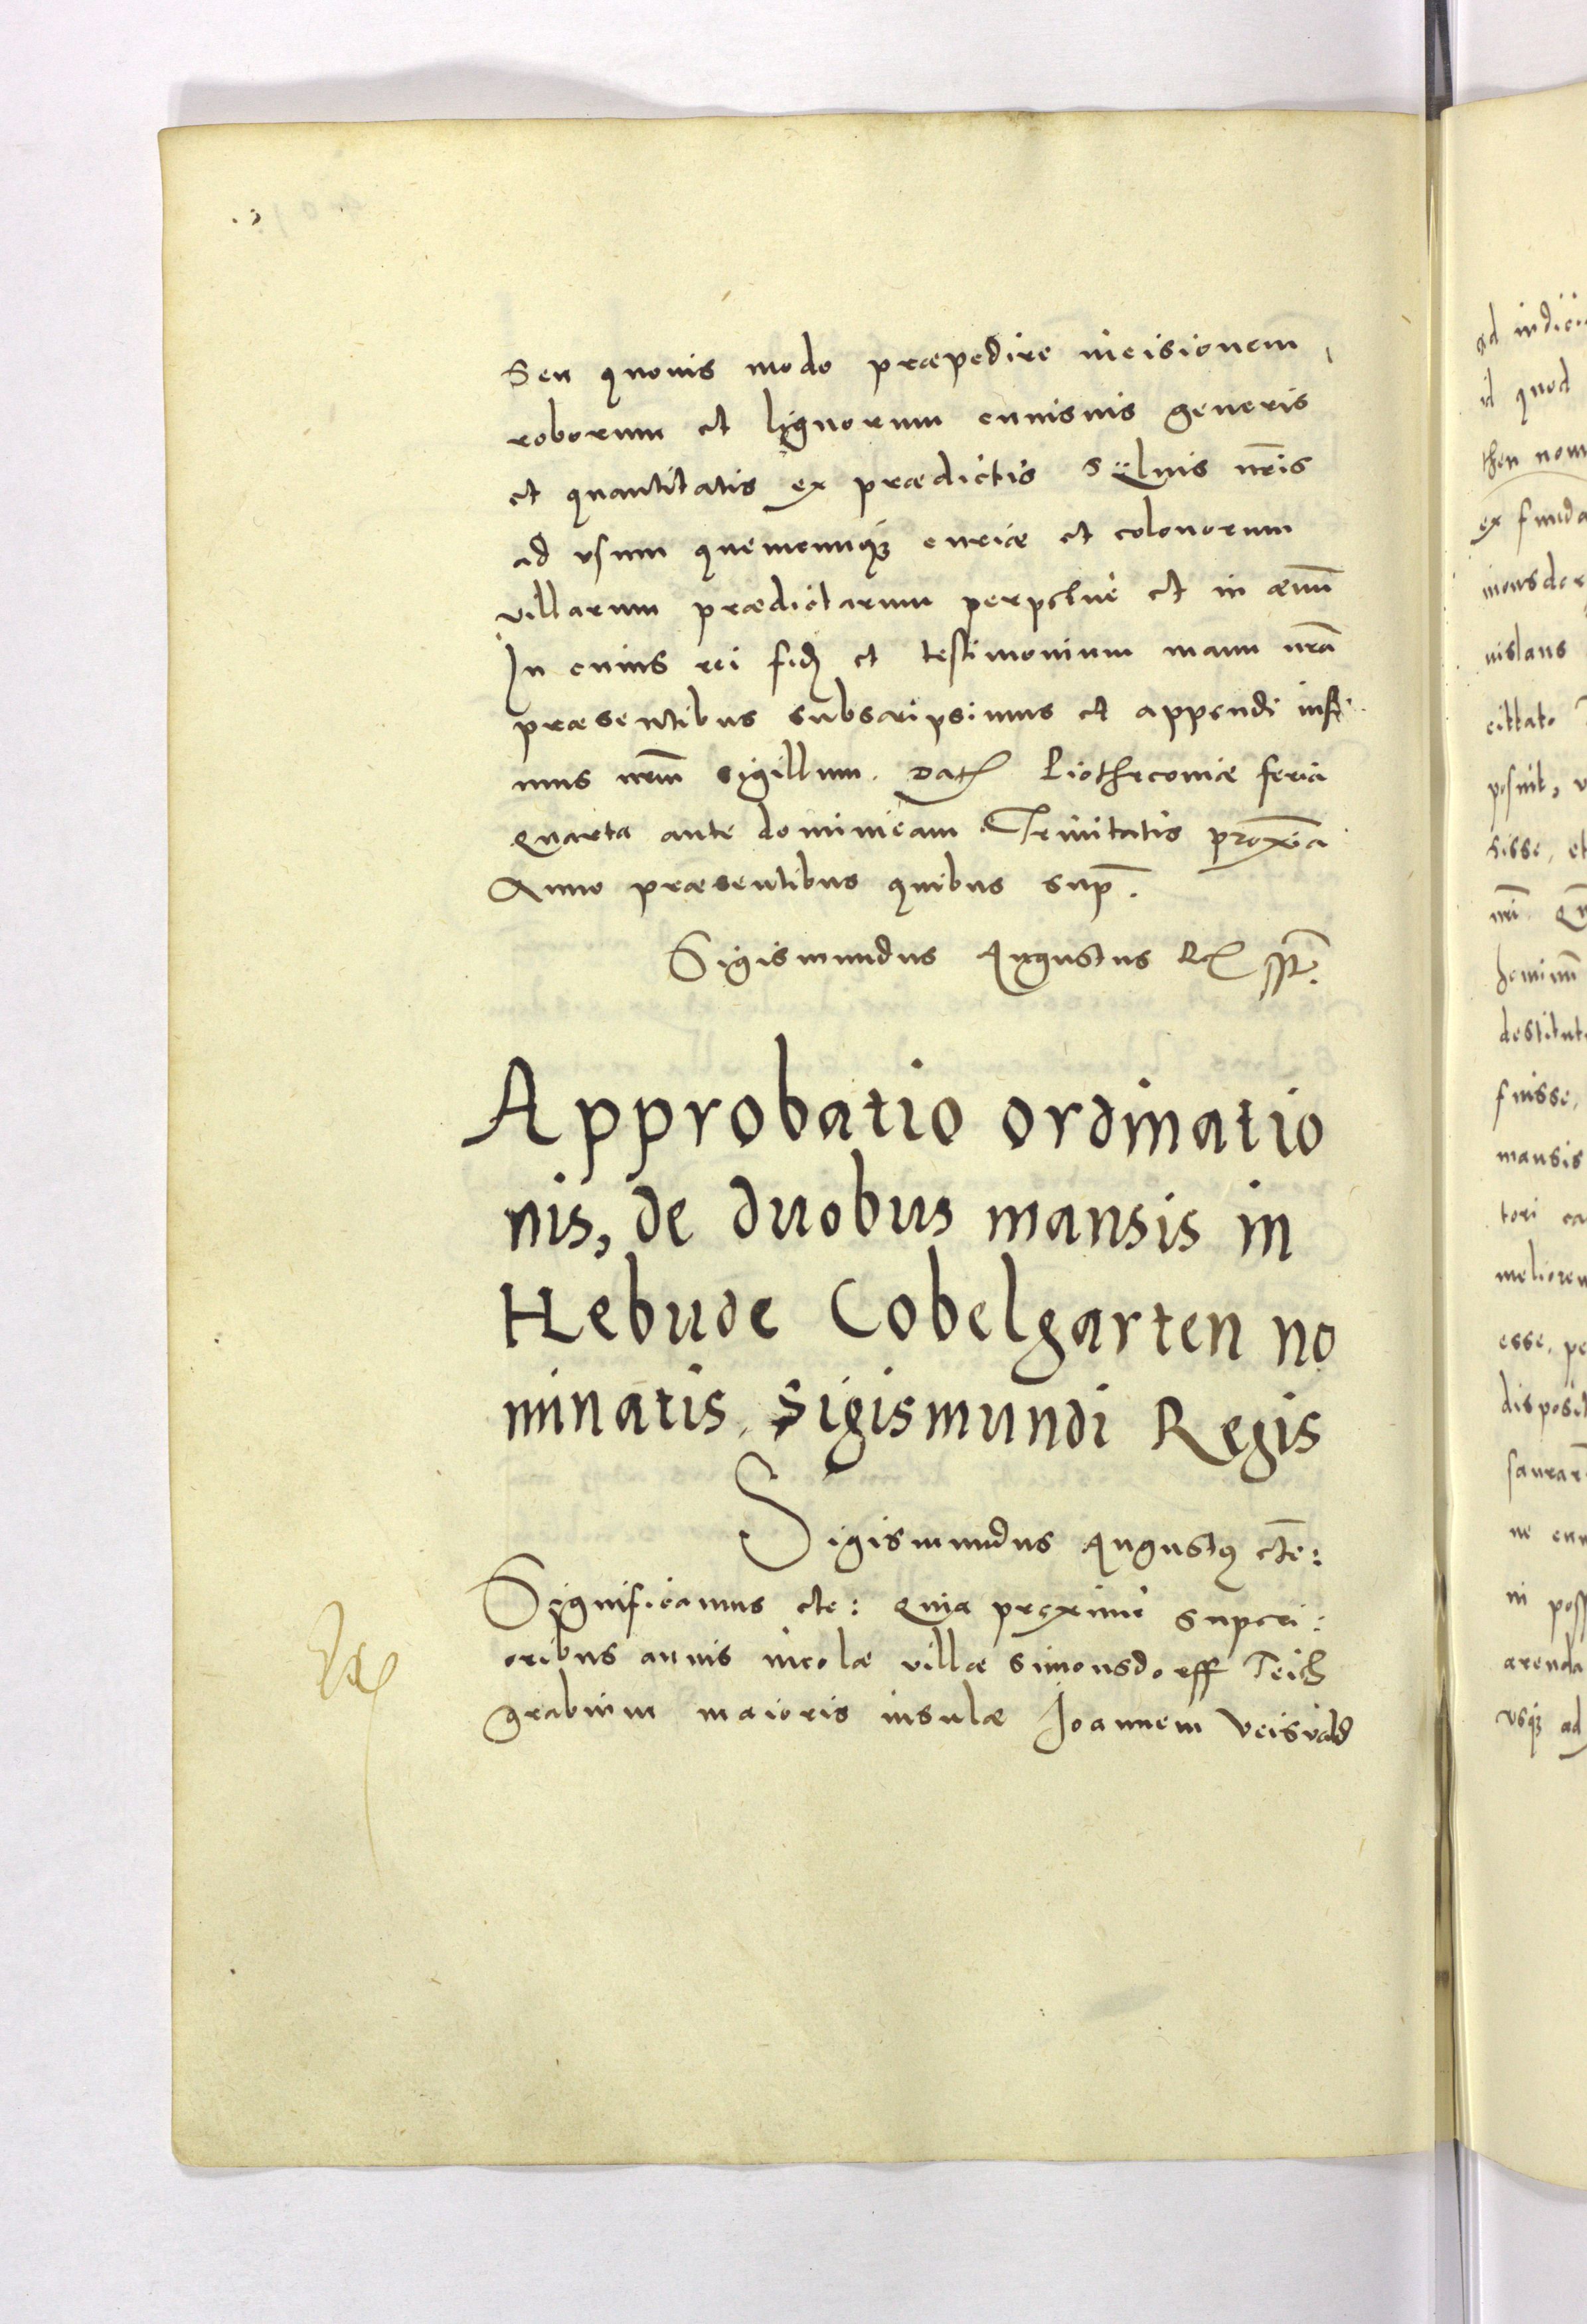 Seu quouis modo præpedire incisionem,
roborum et lignorum cuiusuis generis
et quantitatis ex prædictis sÿluis nr̃is
ad vsum quemcunqꝫ curiæ et colonorum
villarum prædictarum perpetuè et in æuũ
In cuius rei fidẽ et testimonium manu nr̃a
præsentibus subscripsimus et appendi iussi
mus nr̃m sigillum. Dat̃ Piotrcouiæ feria
quarta ante dominicam Trinitatis proxĩa
Anno præsentibus quibus sup̃.
Sigismundus Augustus Rex sst.
Approbatio ordinatio
nis, de duobus mansis in
Hebude Cobelgarten no
minatis, Sigismundi Regis
Sigismundus Augustꝰ etc̃:
Significamus etc: Quia proximè superi:
oribus annis incolæ villæ Simonsdorff Teich
grabium maioris insulæ Joannem Veisvald
ad
id quod
then
ex funda
uislaus
posuit,
sisse, et
destitut
fuisse,
mansis
tori
esse,
arenda
vsqꝫ ad